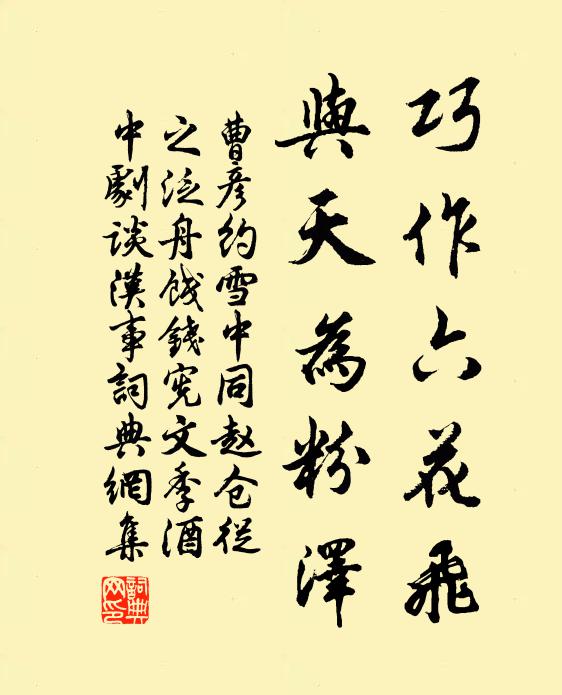 巧作六花飛
與天為粉澤
曹彥約雪中同趙仓從
之泛舟餞錢宪文季酒
中劇談漢事詞典網集
詞典
网印